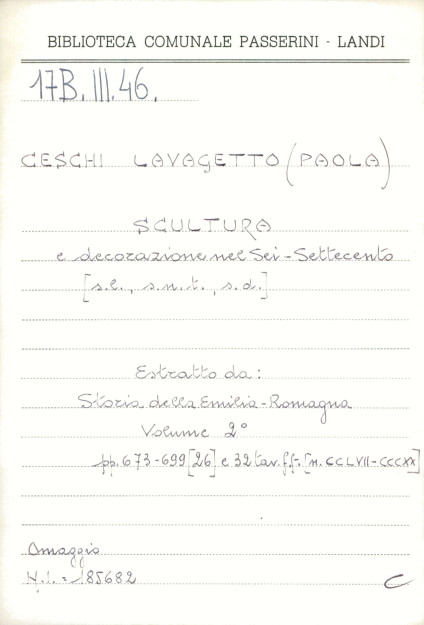 BIBLIOTECA COMUNALE PASSERINI - LANDI
17B.III.46.
CESCHI LAVAGETTO (PAOLA)
SCULTURA
e decorazione nel Sei-Settecento
[s.l., s.n.t., s.d.]
Estratto da:
Storia della Emilia-Romagna
Volume 2°
pp. 673-699 [26] e 32 tav. f.t. [n. CCLVII-CCCXX]
Omaggio
N.i. = 185682
C